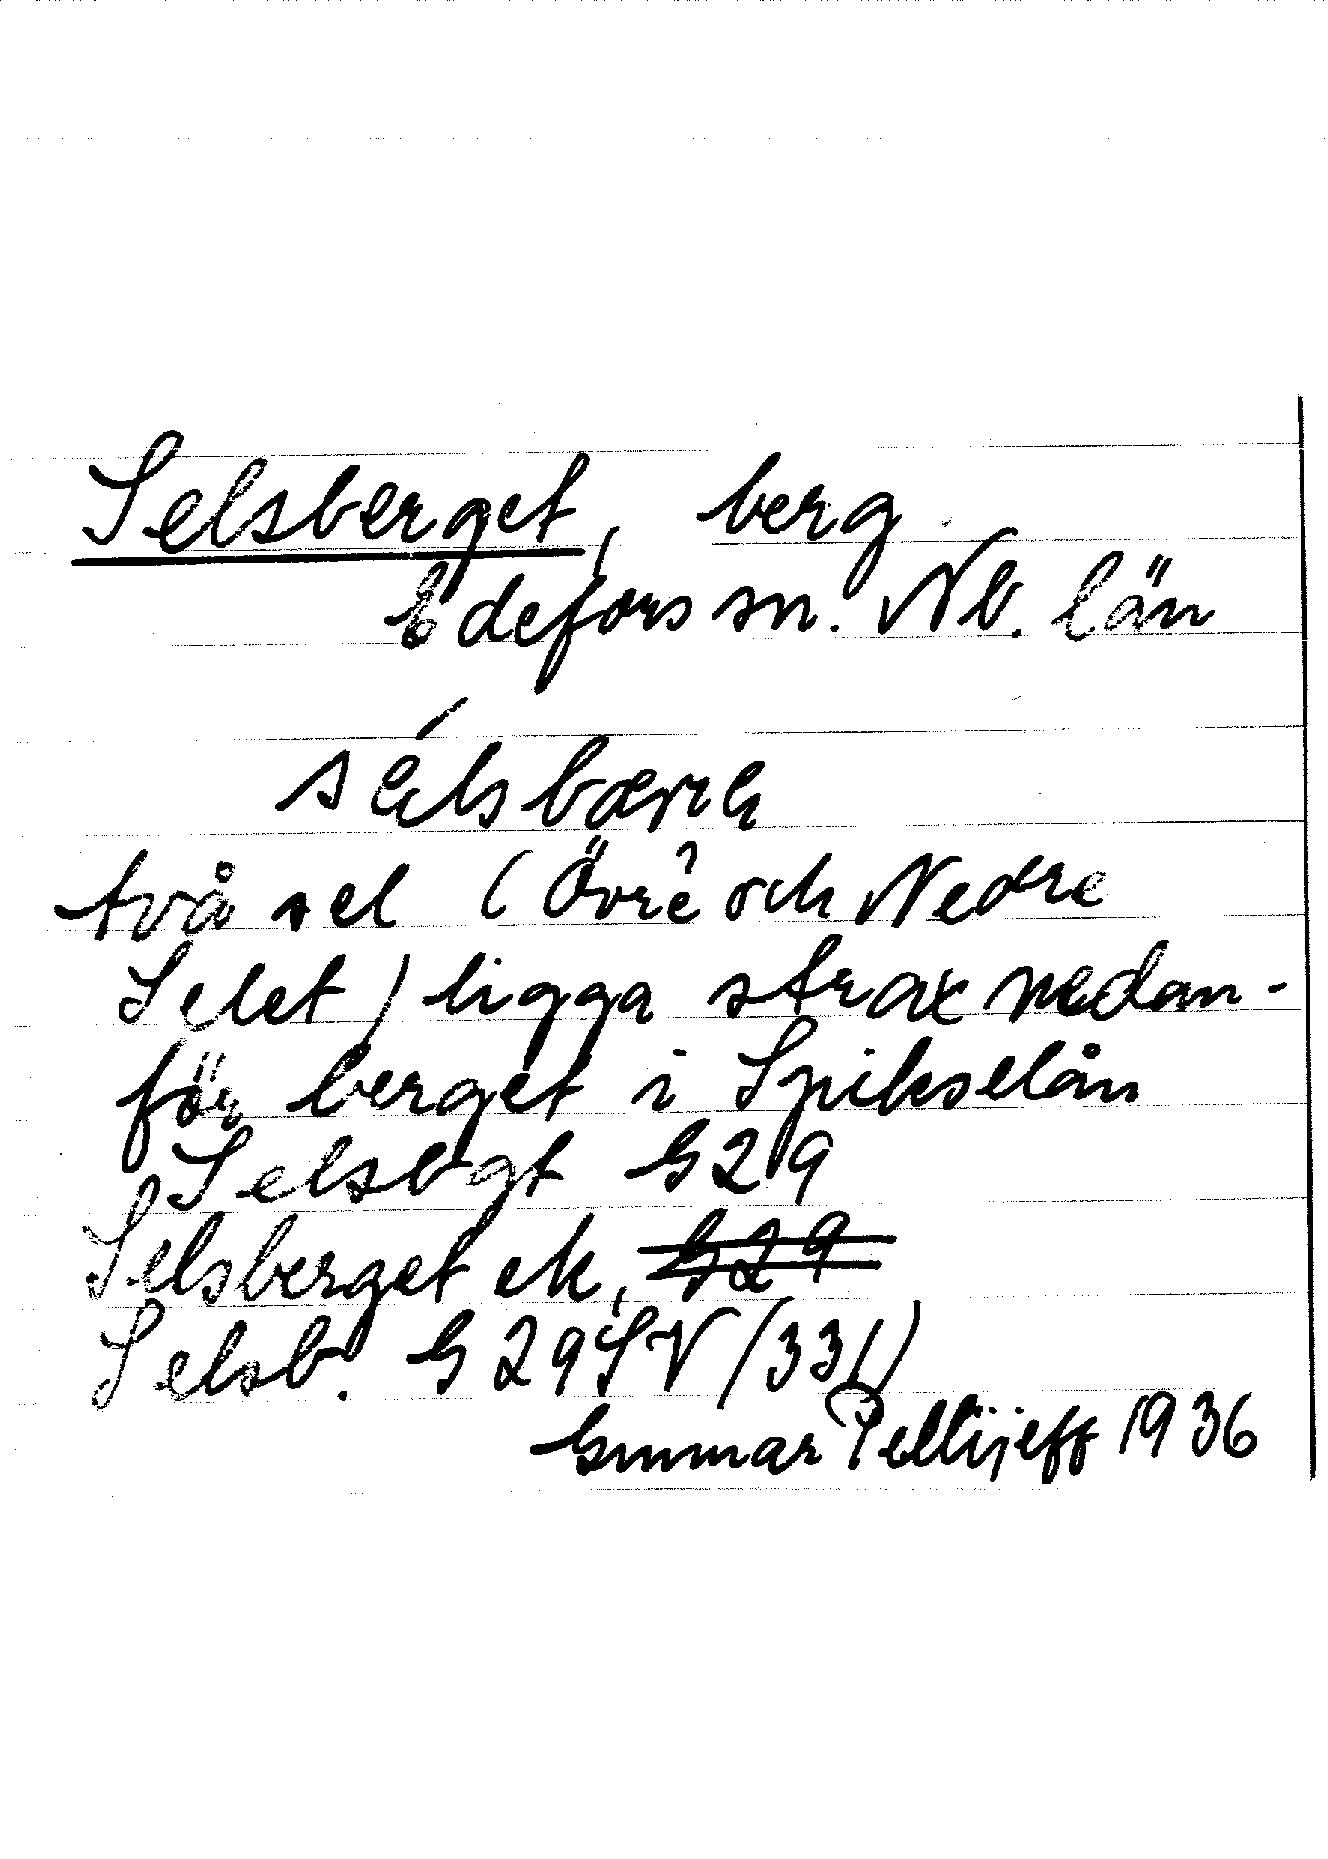 Selsberget, berg
Edefors sn. Nb. län
sélsbærch
två sel (Övre och Nedre
Selet) ligga strax nedan-
för berget i Spikselån
Selsbgt G29
Selsberget ek, G29
Selsb. G29SV (331)
Gunnar Pellijeff 1936